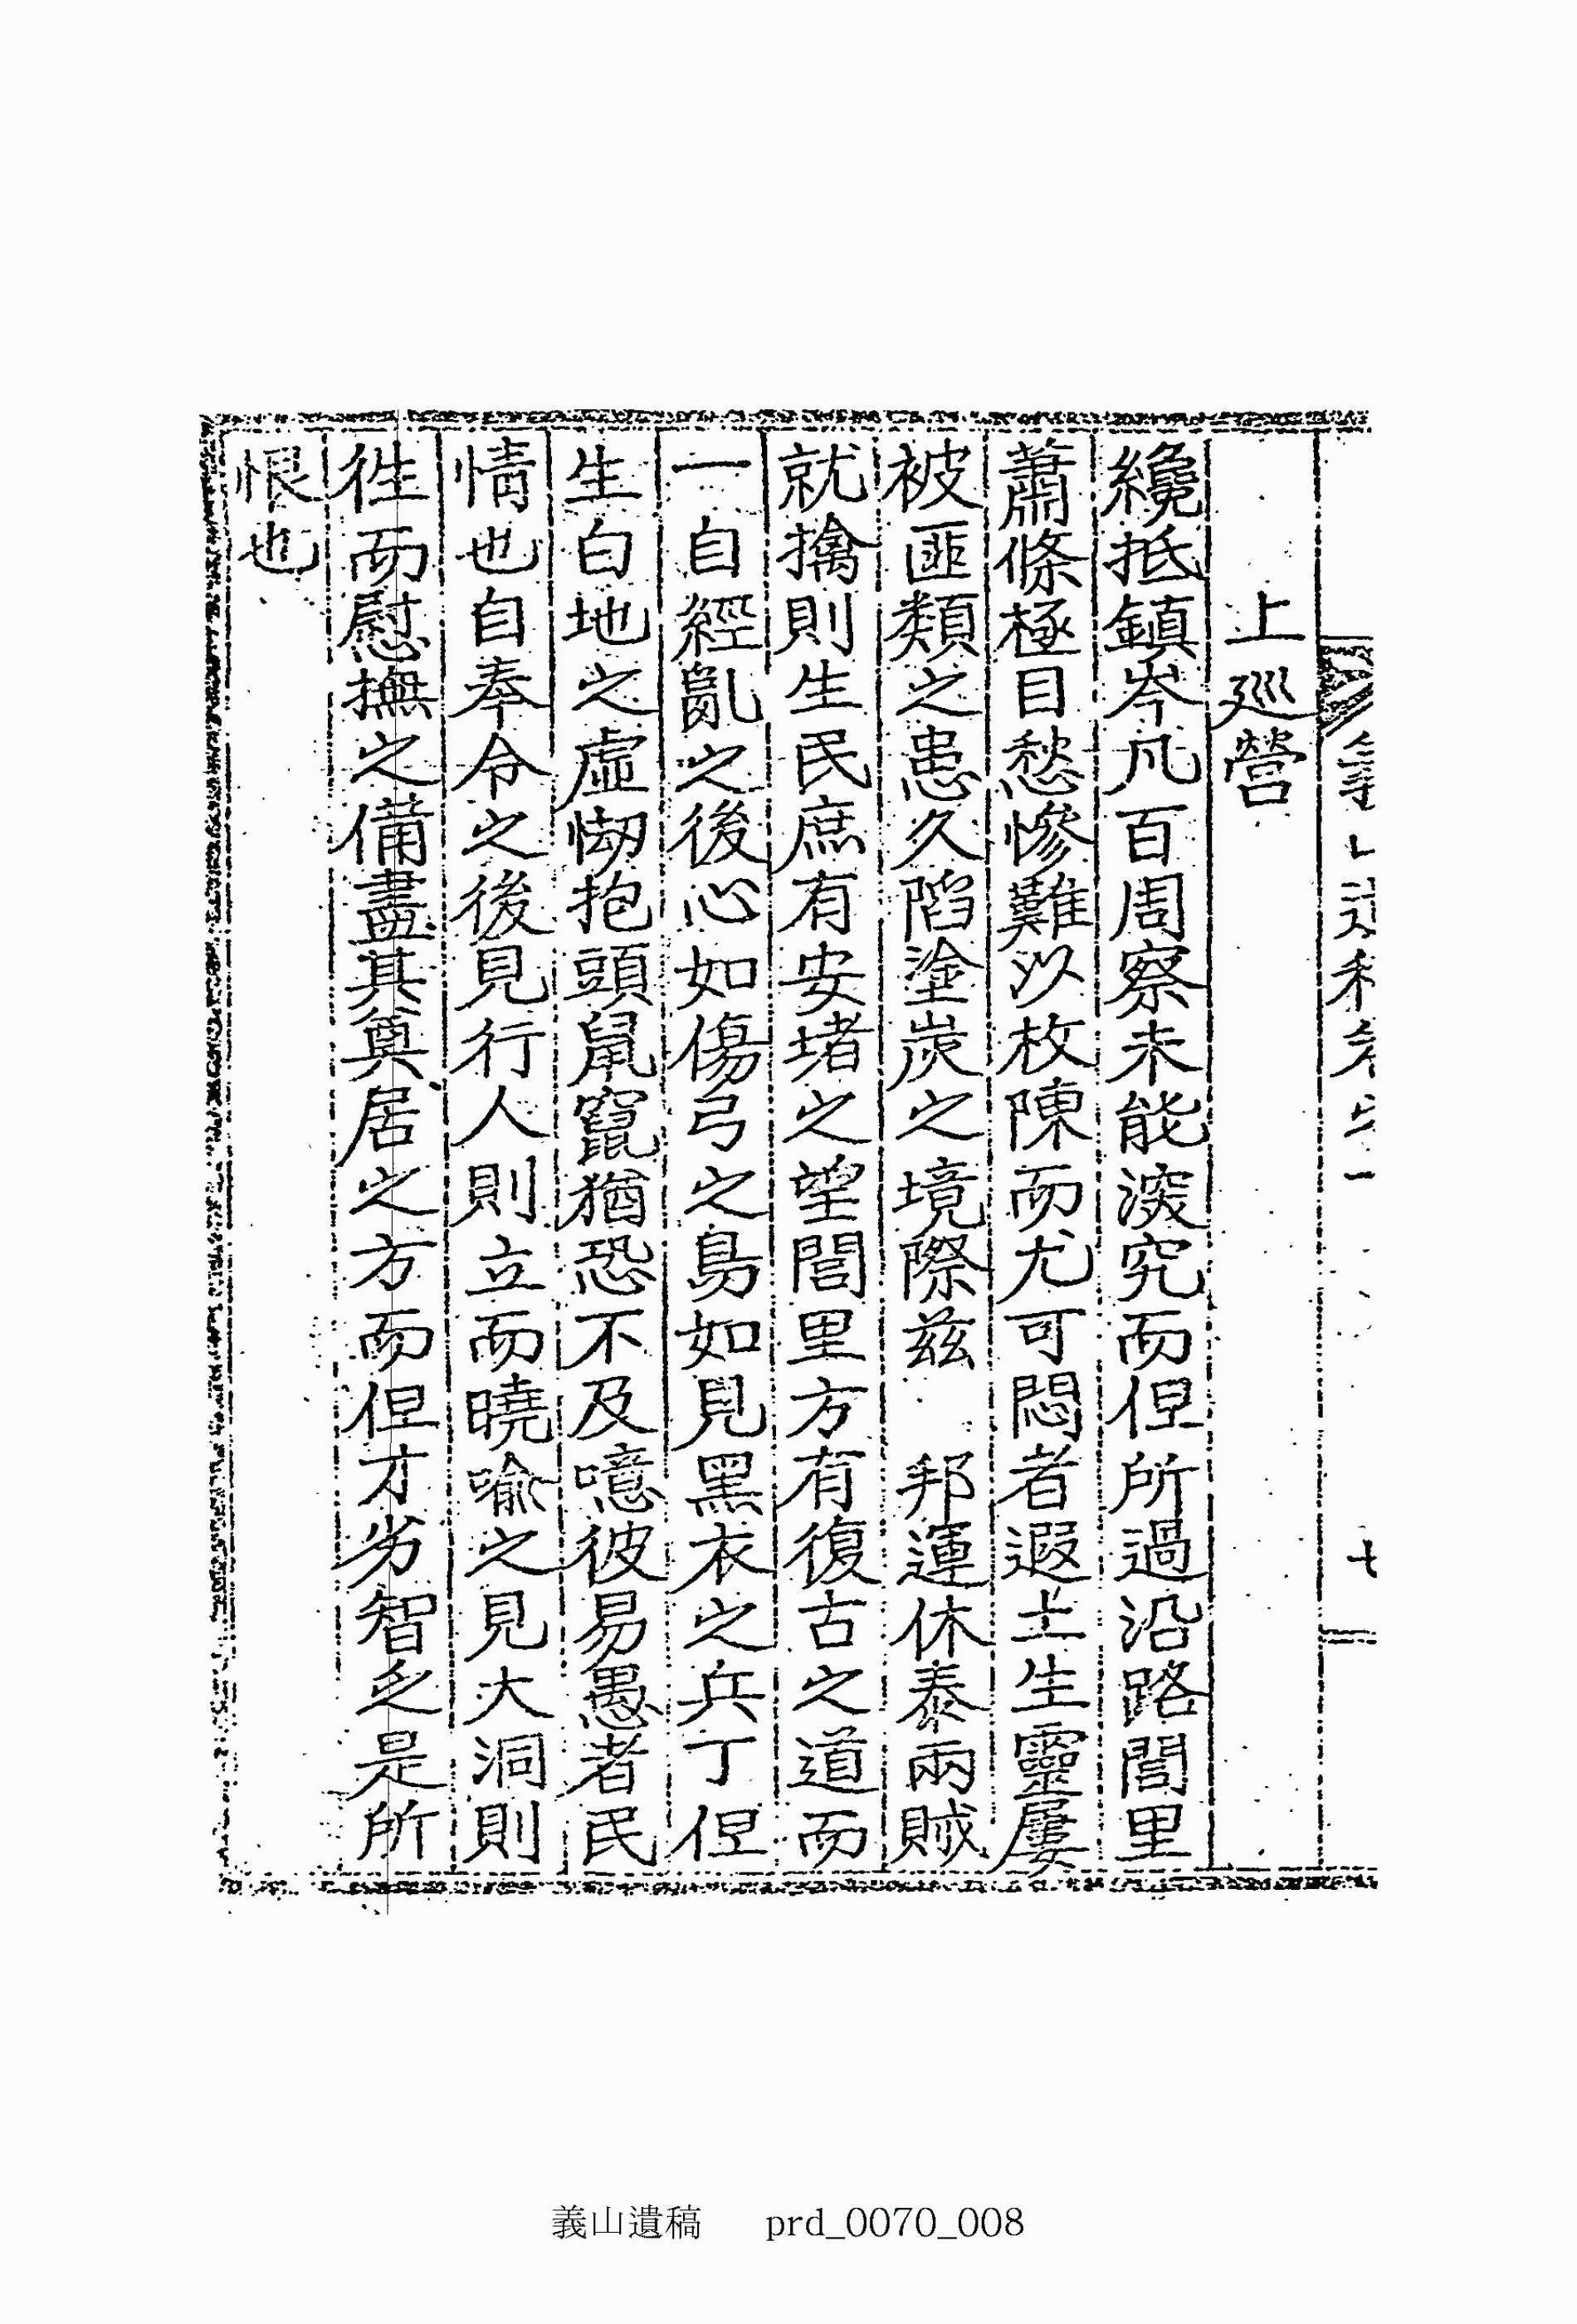 義山遺稿卷之一 七
上廵營
纔抵鎮岑凡百周察未能深究而但所過沿路閭里
蕭條極目愁慘難以枚陳而尤可悶者遐土生靈屢
被匪類之患久陷塗炭之境際茲 邦運休泰兩賊
就擒則生民庶有安堵之望閭里方有復古之道而
一自經亂之後心如傷弓之鳥如見黑衣之兵丁但
生白地之虛㤼抱頭鼠竄猶恐不及噫彼易愚者民
情也自奉令之後見行人則立而曉喻之見大洞則
徃而慰撫之備盡其奠居之方而但才劣智乏是所
恨也
義山遺稿 prd_0070_008